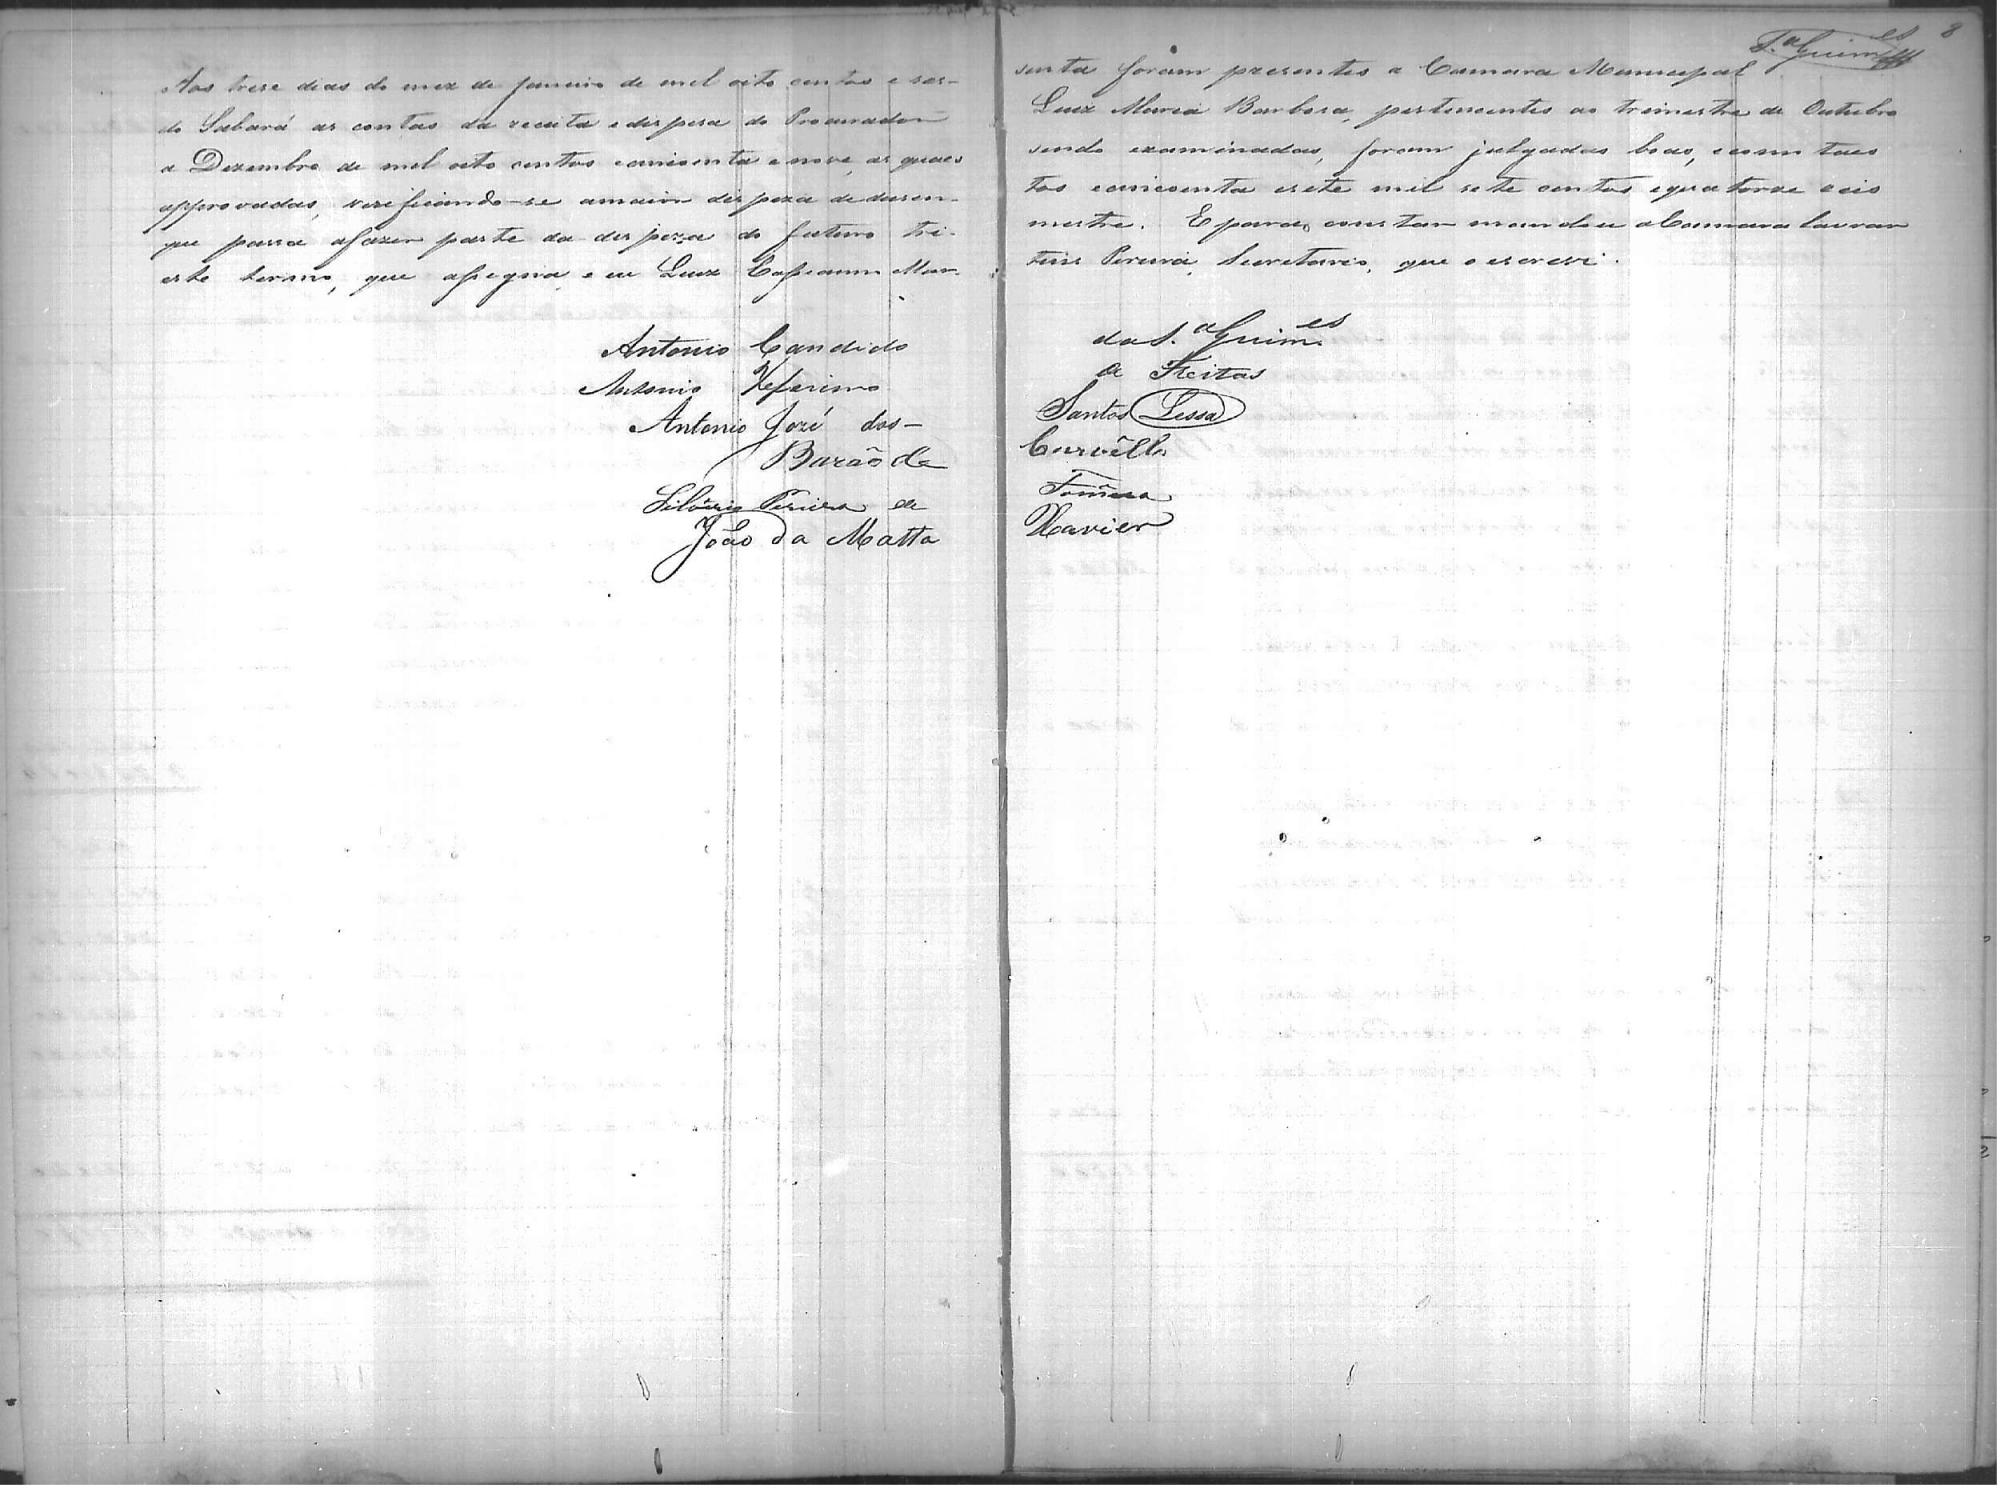 8
S.ª Guim.es
Aos trese dias do mez de Janeiro de mil oito centos e ses- senta foram presentes a Camara Municipal
do Sabará as contas da receita e despesa do Procurador Luiz Maria Barbosa, pertencentes ao trimestre de Outubro
a Dezembro de mil oito centos e cincoenta e nove, as quaes sendo examinadas, foram julgadas boas, e como taes
approvadas, verificando-se a maior despeza de duzen- tos e cincoenta e sete mil sete centos e quatorze reis
que passa a fazer parte da despeza do futuro tri- mestre. E para constar mandou a Camara lavrar
este termo, que assigna, e eu Luiz Cassiano Mar- tins Pereira, Secretario, que o escrevi.
Antonio Candido da S.ª Guim.es
Antonio Zeferino de Freitas
Antonio José dos- Santos Lessa
Barão de Curvêllo
Silverio Pereira da Fonseca
João da Matta Xavier